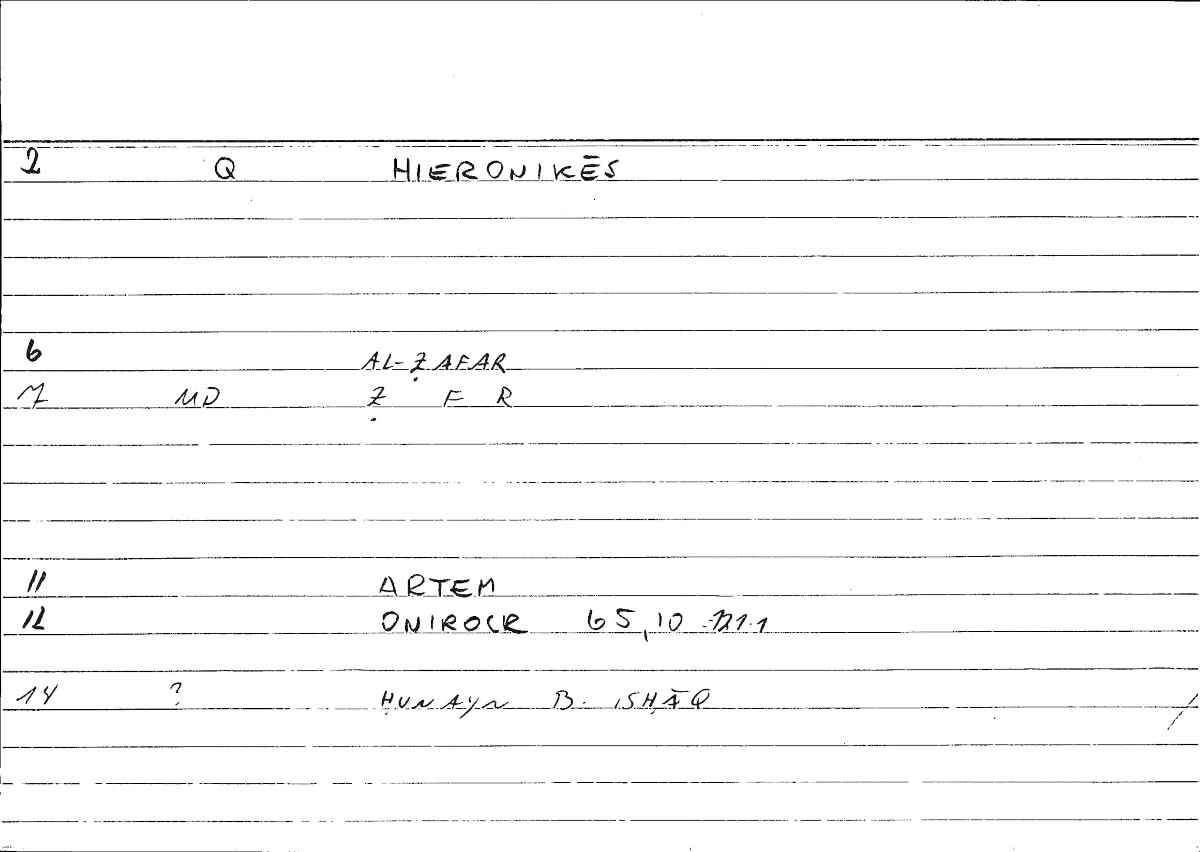 2 Q HIERONIKĒS
6 AL-ẒAFAR
7 MD Ẓ F R
11 ARTEM
12 ONIROCR 65,10 -121.1
14 ? ḤUNAYN B. ISḤĀQ